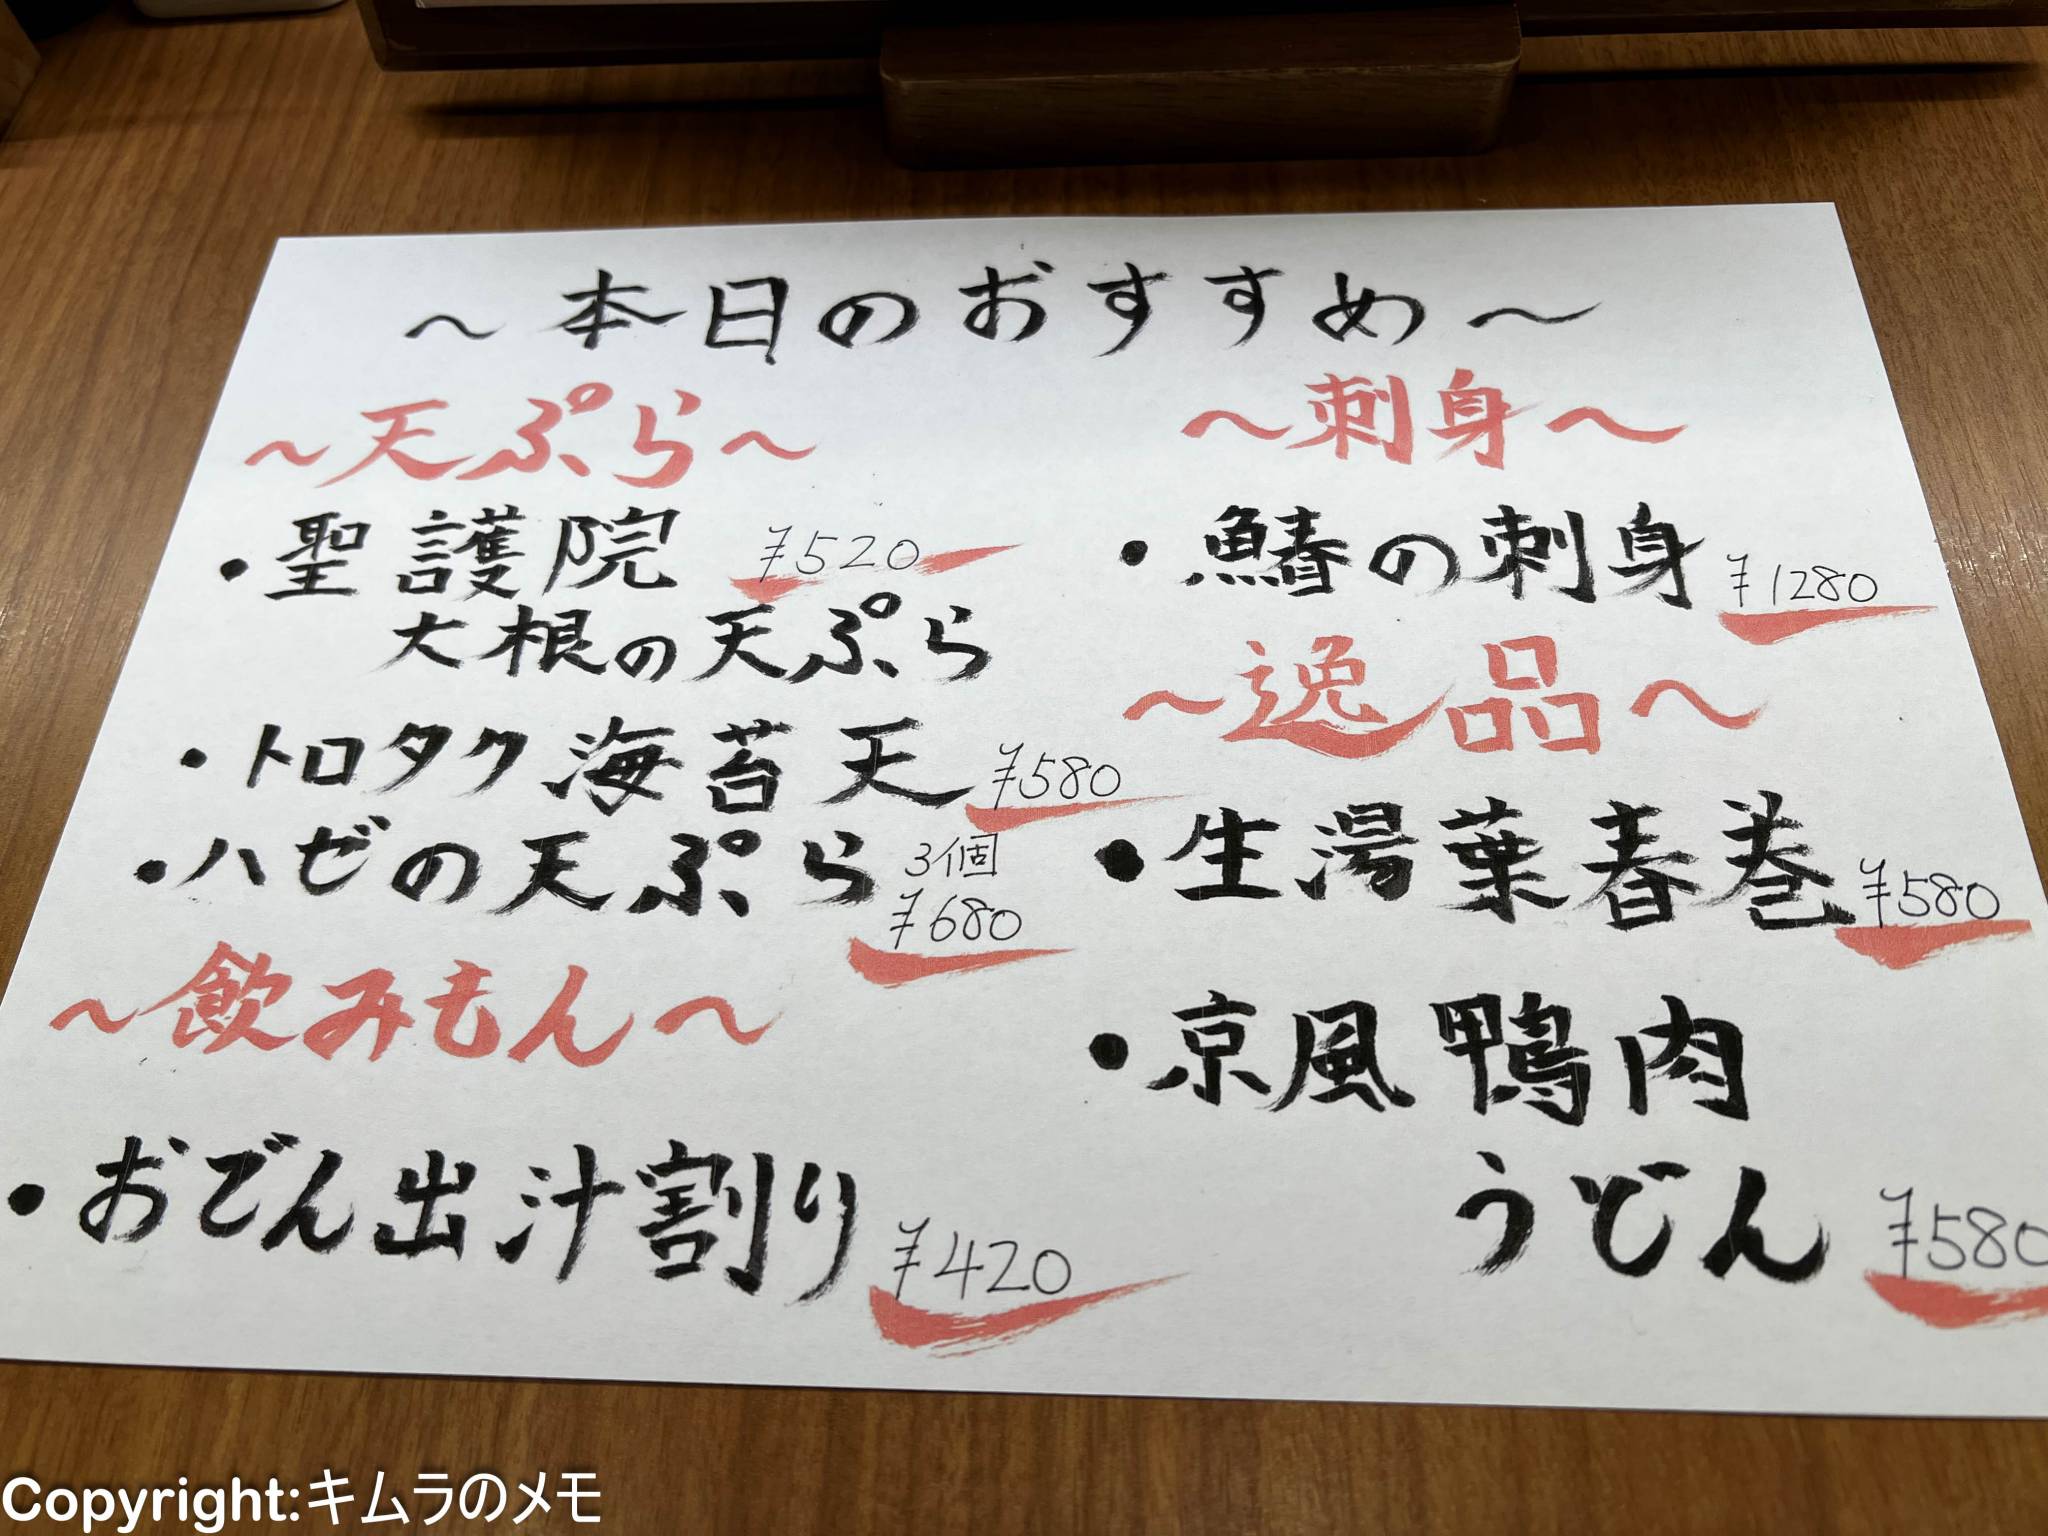 ～本日のおすすめ～
～天ぷら～
・聖護院 ¥520
大根の天ぷら
・トロタク海苔天 ¥580
・ハゼの天ぷら 3個
¥680
～飲みもん～
・おでん出汁割り ¥420
～刺身～
・鰆の刺身 ¥1280
～逸品～
・生湯葉春巻 ¥580
・京風鴨肉
うどん ¥580
Copyright:キムラのメモ